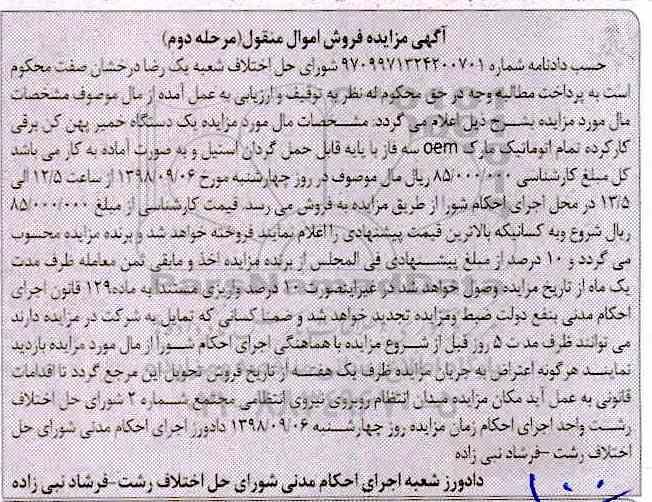 آگهی مزایده فروش اموال منقول(مرحله دوم)
حسب دادنامه شماره ۹۷۰۹۹۷۱۳۲۴۲۰۰۷۰۱ شورای حل اختلاف شعبه یک رضا درخشان صفت محکوم
است به پرداخت مطالبه وجه در حق محکوم له نظر به توقیف و ارزیابی به عمل آمده از مال موصوف مشخصات
مال مورد مزایده بشرح ذیل اعلام می گردد: مشخصات مال مورد مزایده یک دستگاه خمیر پهن کن برقی
کارکرده تمام اتوماتیک مارک oem سه فاز با پایه قابل حمل گردان استیل و به صورت آماده به کار می باشد
کل مبلغ کارشناسی ۸۵/۰۰۰/۰۰۰ ریال مال موصوف در روز چهارشنبه مورخ ۱۳۹۸/۰۹/۰۶ از ساعت ۱۲/۵ الی
۱۳/۵ در محل اجرای احکام شورا از طریق مزایده به فروش می رسد. قیمت کارشناسی از مبلغ ۸۵/۰۰۰/۰۰۰
ریال شروع وبه کسانیکه بالاترین قیمت پیشنهادی را اعلام نمایند فروخته خواهد شد و برنده مزایده محسوب
می گردد و ۱۰ درصد از مبلغ پیشنهادی فی المجلس از برنده مزایده اخذ و مابقی ثمن معامله ظرف مدت
یک ماه از تاریخ مزایده وصول خواهد شد در غیراینصورت ۱۰ درصد واریزی مستندا به ماده۱۲۹ قانون اجرای
احکام مدنی بنفع دولت ضبط ومزایده تجدید خواهد شد و ضمنا کسانی که تمایل به شرکت در مزایده دارند
می توانند ظرف مدت ۵ روز قبل از شروع مزایده با هماهنگی اجرای احکام شورا از مال مورد مزایده بازدید
نمایند هرگونه اعتراض به جریان مزایده ظرف یک هفته از تاریخ فروش تحویل این مرجع گردد تا اقدامات
قانونی به عمل آید مکان مزایده میدان انتظام روبروی نیروی انتظامی مجتمع شماره ۲ شورای حل اختلاف
رشت واحد اجرای احکام زمان مزایده روز چهارشنبه ۱۳۹۸/۰۹/۰۶ دادورز اجرای احکام مدنی شورای حل
اختلاف رشت -فرشاد نبی زاده
دادورز شعبه اجرای احکام مدنی شورای حل اختلاف رشت-فرشاد نبی زاده